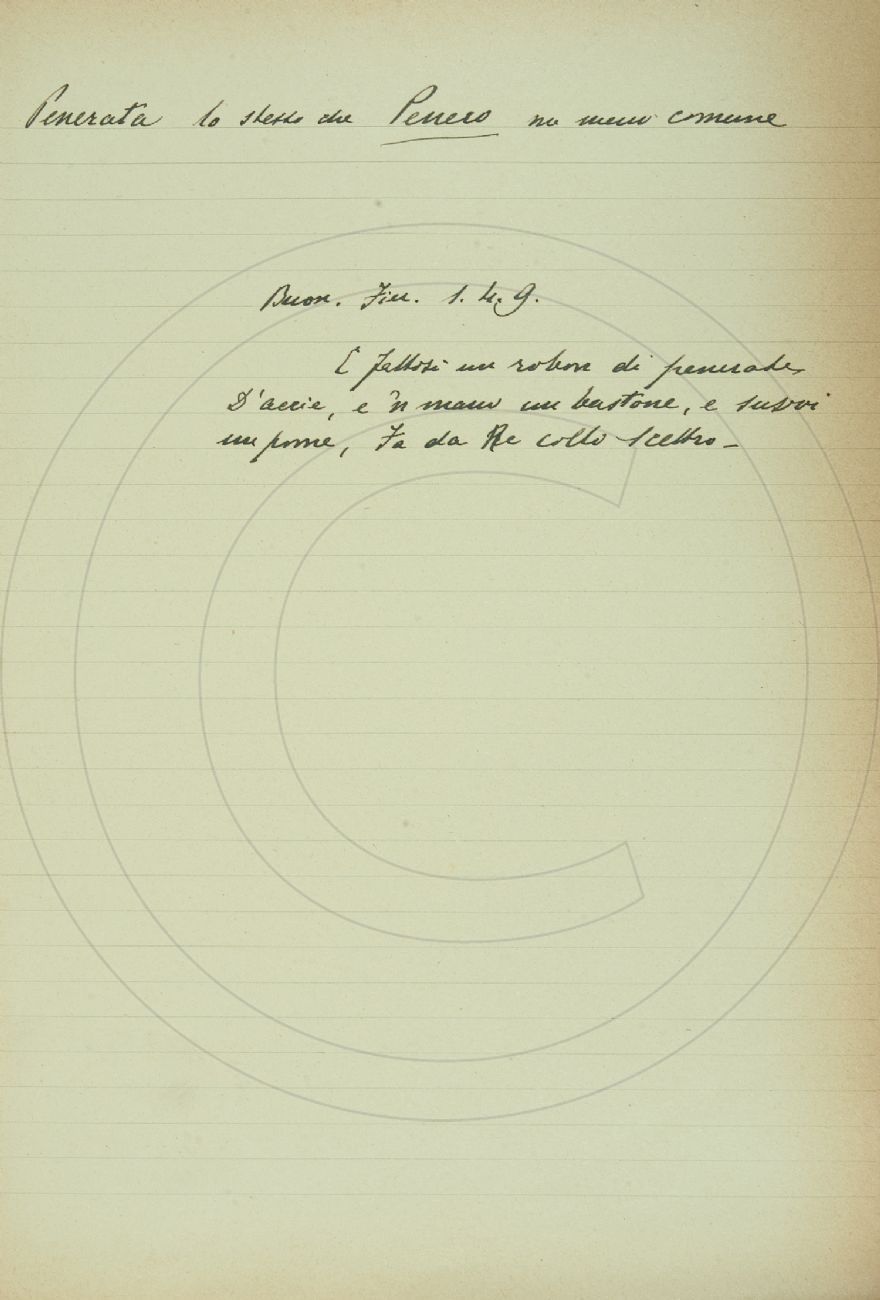 Penerata lo stesso che Penero ma meno comune
Buon. Fier. 1. 4. 9.
E fattosi un robon di penerate
D'accie, e 'n mano un bastone, e suvvi
un pome, Fa da Re collo Scettro –